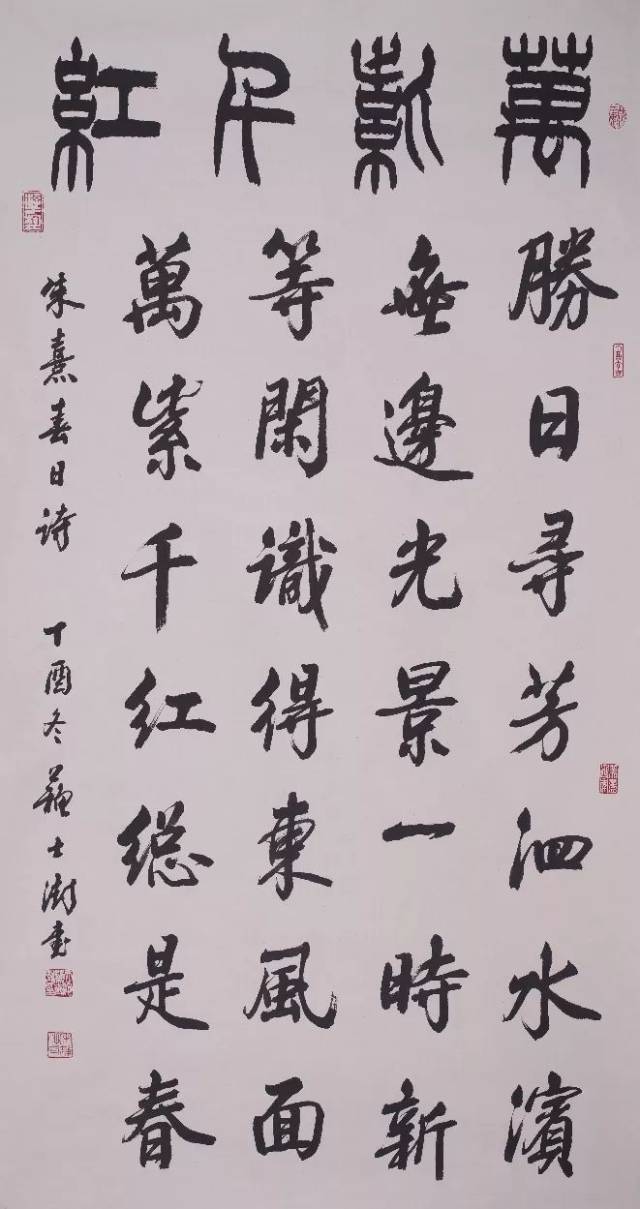 萬紫千紅
勝日尋芳泗水濱
無邊光景一時新
等閑識得東風面
萬紫千红總是春
朱熹春日诗 丁酉冬蘇士澍書